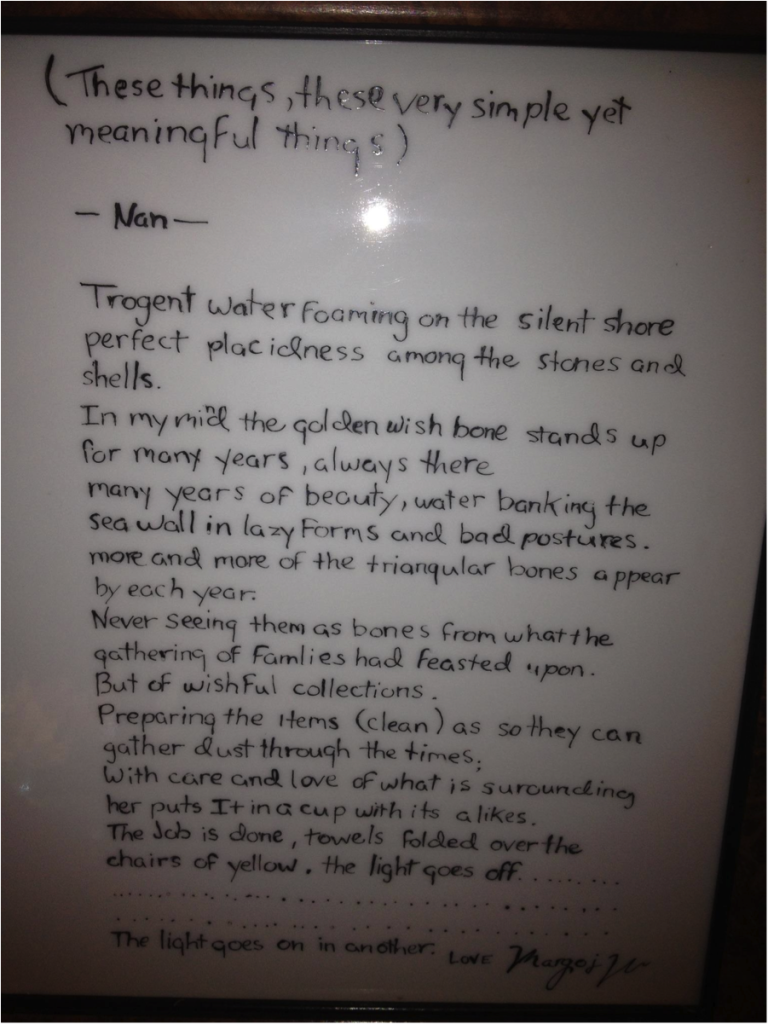 (These things, these very simple yet
meaningful things)
— Nan —
Trogent water foaming on the silent shore
perfect placidness among the stones and
shells.
In my mind the golden wish bone stands up
for many years, always there
many years of beauty, water banking the
sea wall in lazy Forms and bad postures.
more and more of the triangular bones appear
by each year.
Never seeing them as bones from what the
gathering of Famlies had feasted upon.
But of wishful collections.
Preparing the items (clean) as so they can
gather dust through the times;
With care and love of what is surounding
her puts It in a cup with its alikes.
The Job is done, towels folded over the
chairs of yellow. the light goes off.........
..............................
..............................
The light goes on in another. LOVE